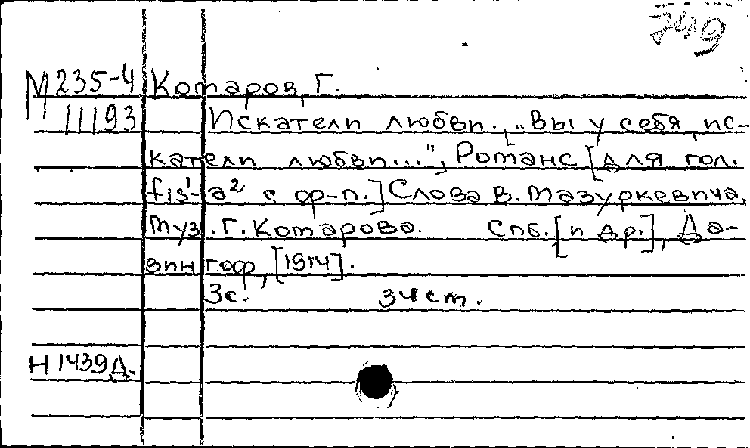 749
М 235-4 Комаров, Г.
11193 Искатели любви. „Вы у себя, ис-
катели любви...", Романс [для гол.
fis¹-a² с ф-п.] Слова В. Мазуркевича,
муз. Г. Комарова. Спб. [и др.], Да-
вингоф, [1914].
3с. 34см.
Н 1439Д.